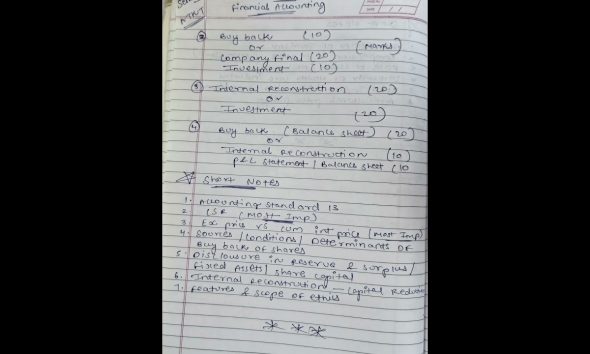 Financial Accounting
ATKT
② Buy back (10)
or (Marks)
Company Final (20)
Investment (10)
③ Internal Reconstruction (20)
or
Investment (20)
④ Buy back (Balance sheet) (20)
or
Internal Reconstruction (10)
P&L Statement / Balance sheet (10
Short Notes
1. Accounting Standard 13
2. CSR (Most Imp)
3. Ex price vs cum int price (Most Imp)
4. Sources / Conditions / Determinants of
Buy back of shares
5. Disclosure in Reserve & surplus /
Fixed Assets / share capital
6. Internal Reconstruction - Capital Reduc
7. Features & scope of ethics